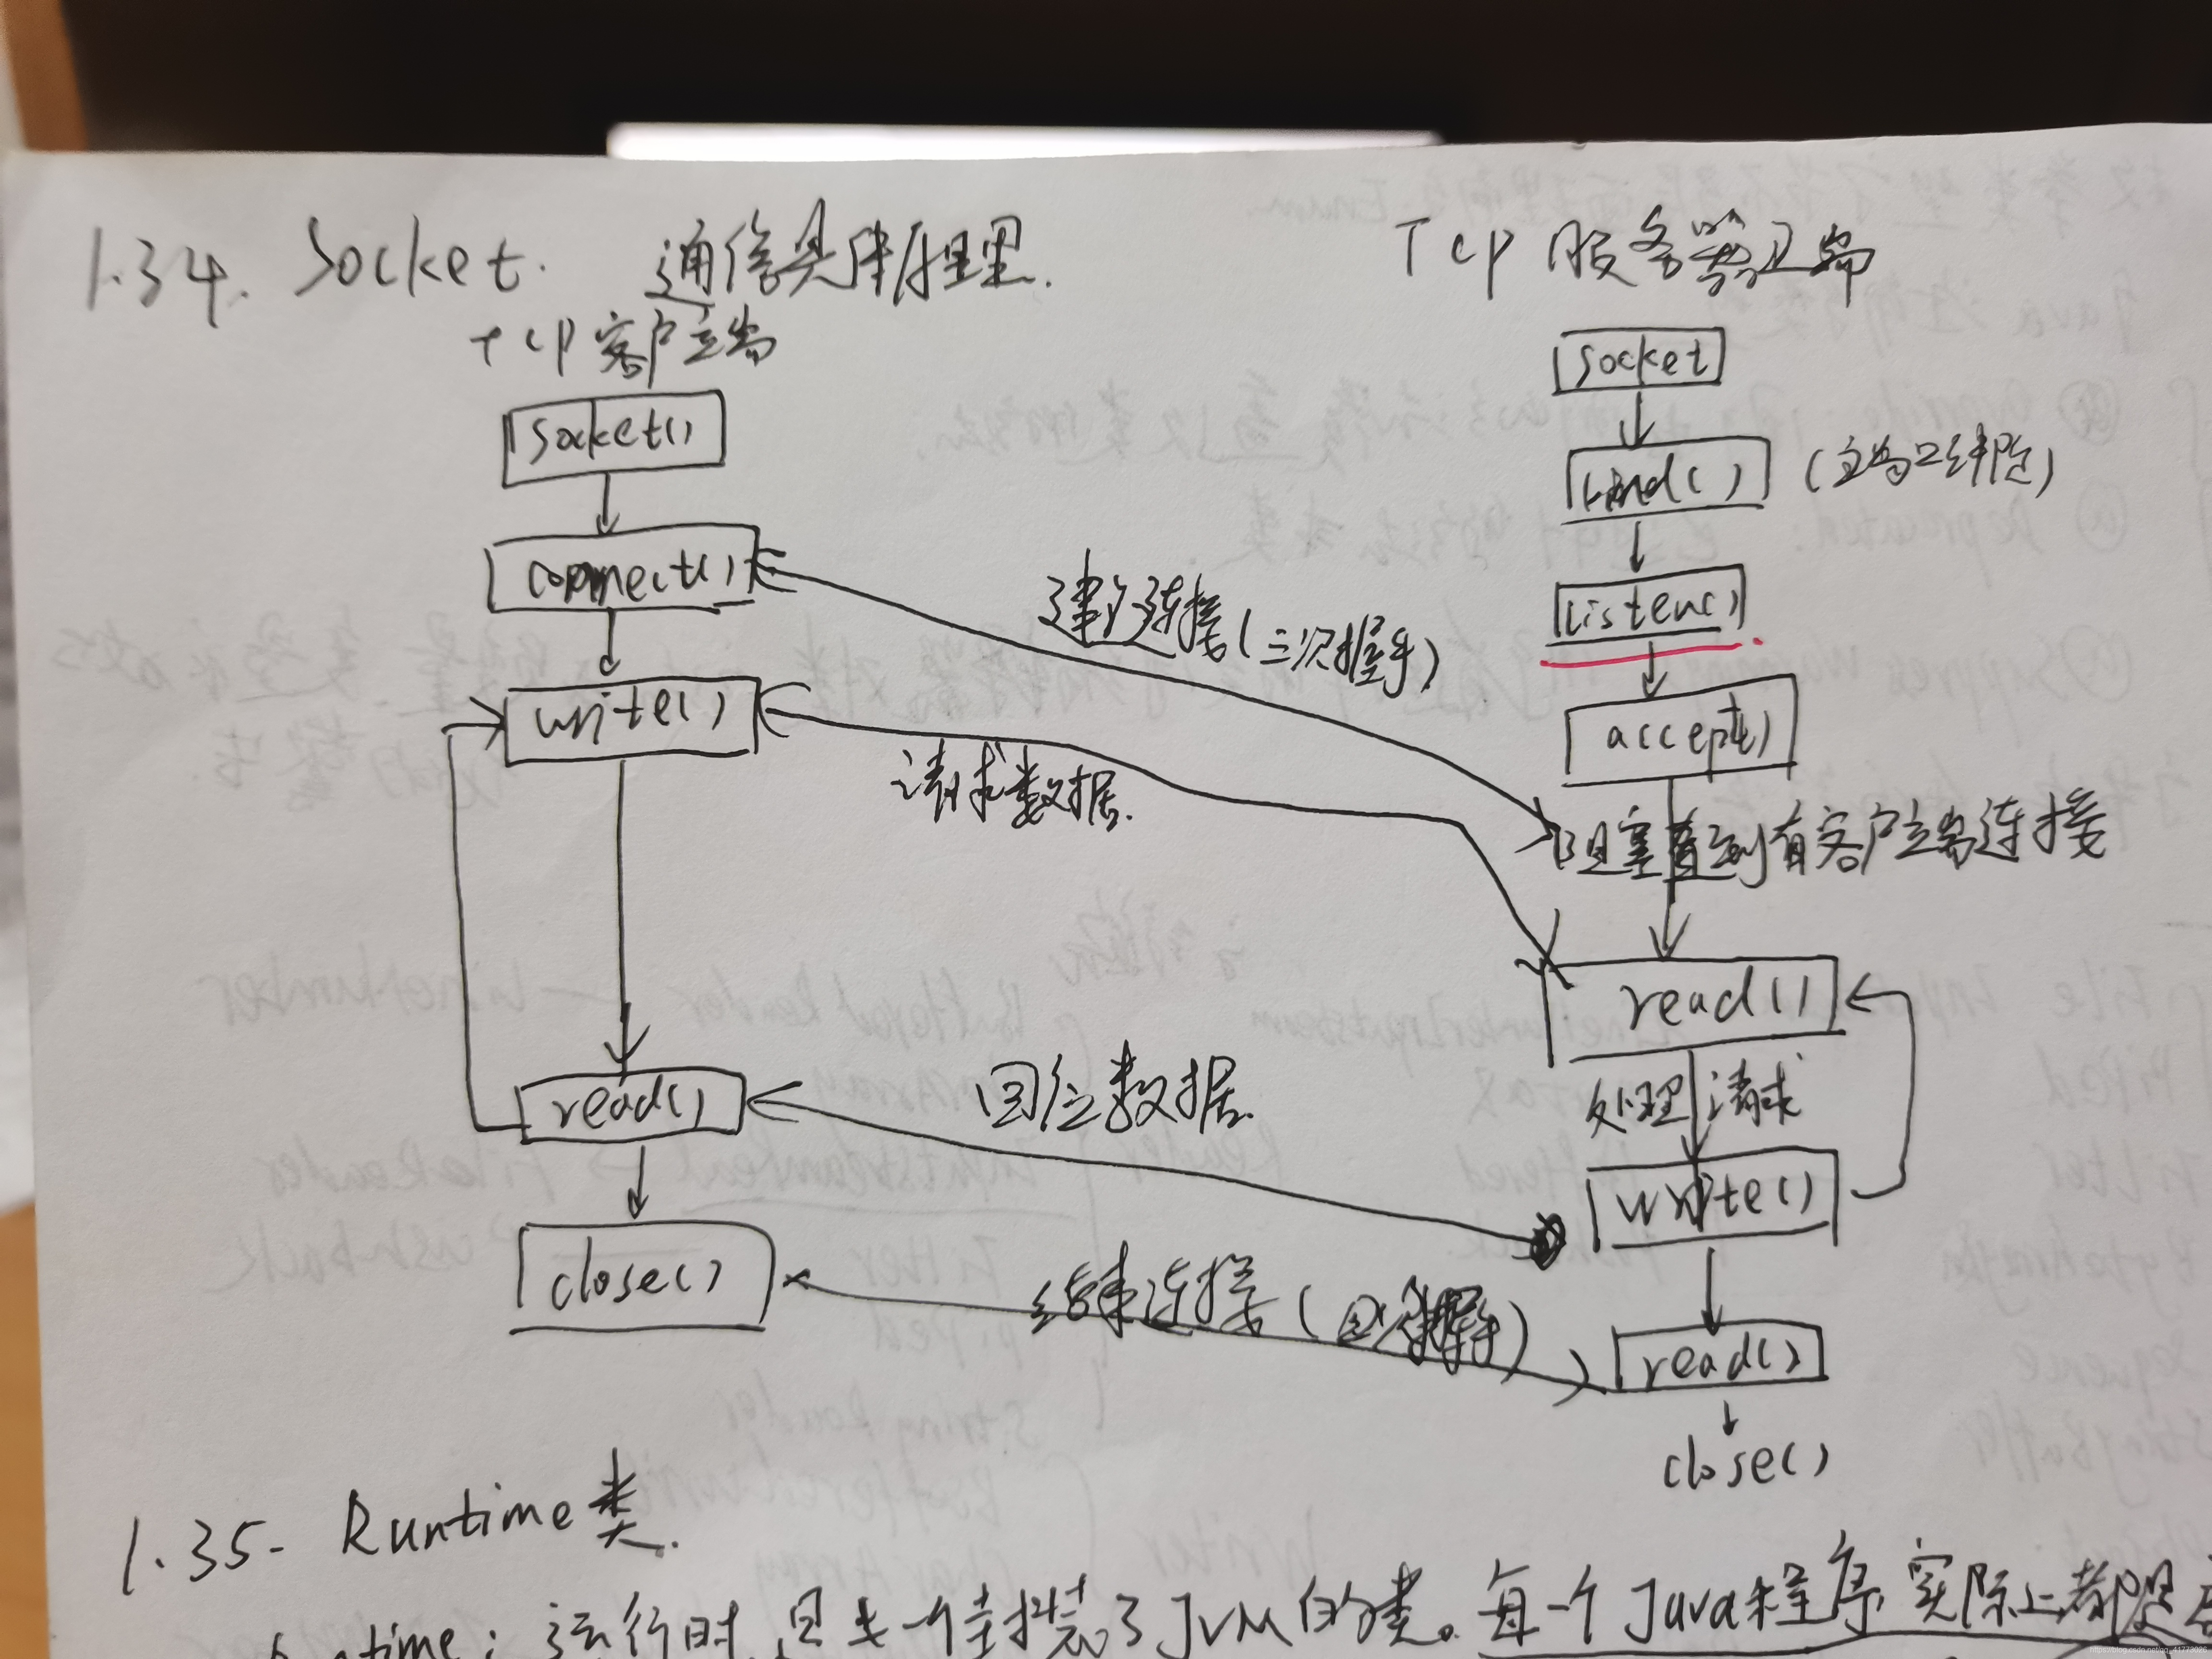 1.34. Socket. 通信具体原理.
TCP 服务器端
TCP 客户端
socket()
connect()
write()
read()
close()
socket
bind()
(端口绑定)
listen()
accept()
阻塞直到有客户端连接
read()
处理请求
write()
read()
close()
建立连接(三次握手)
请求数据.
回应数据.
结束连接(四次握手)
1.35. Runtime类.
运行时,是一个封装了JVM的类。每一个Java程序实际上都是
https://blog.csdn.net/qq_41773026